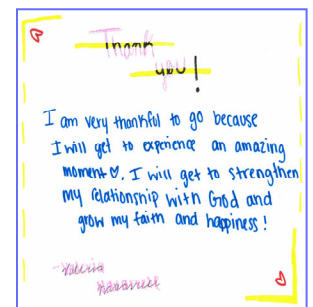 Thank
you!
I am very thankful to go because
I will get to experience an amazing
moment♡. I will get to strengthen
my relationship with God and
grow my faith and happiness!
-Valeria